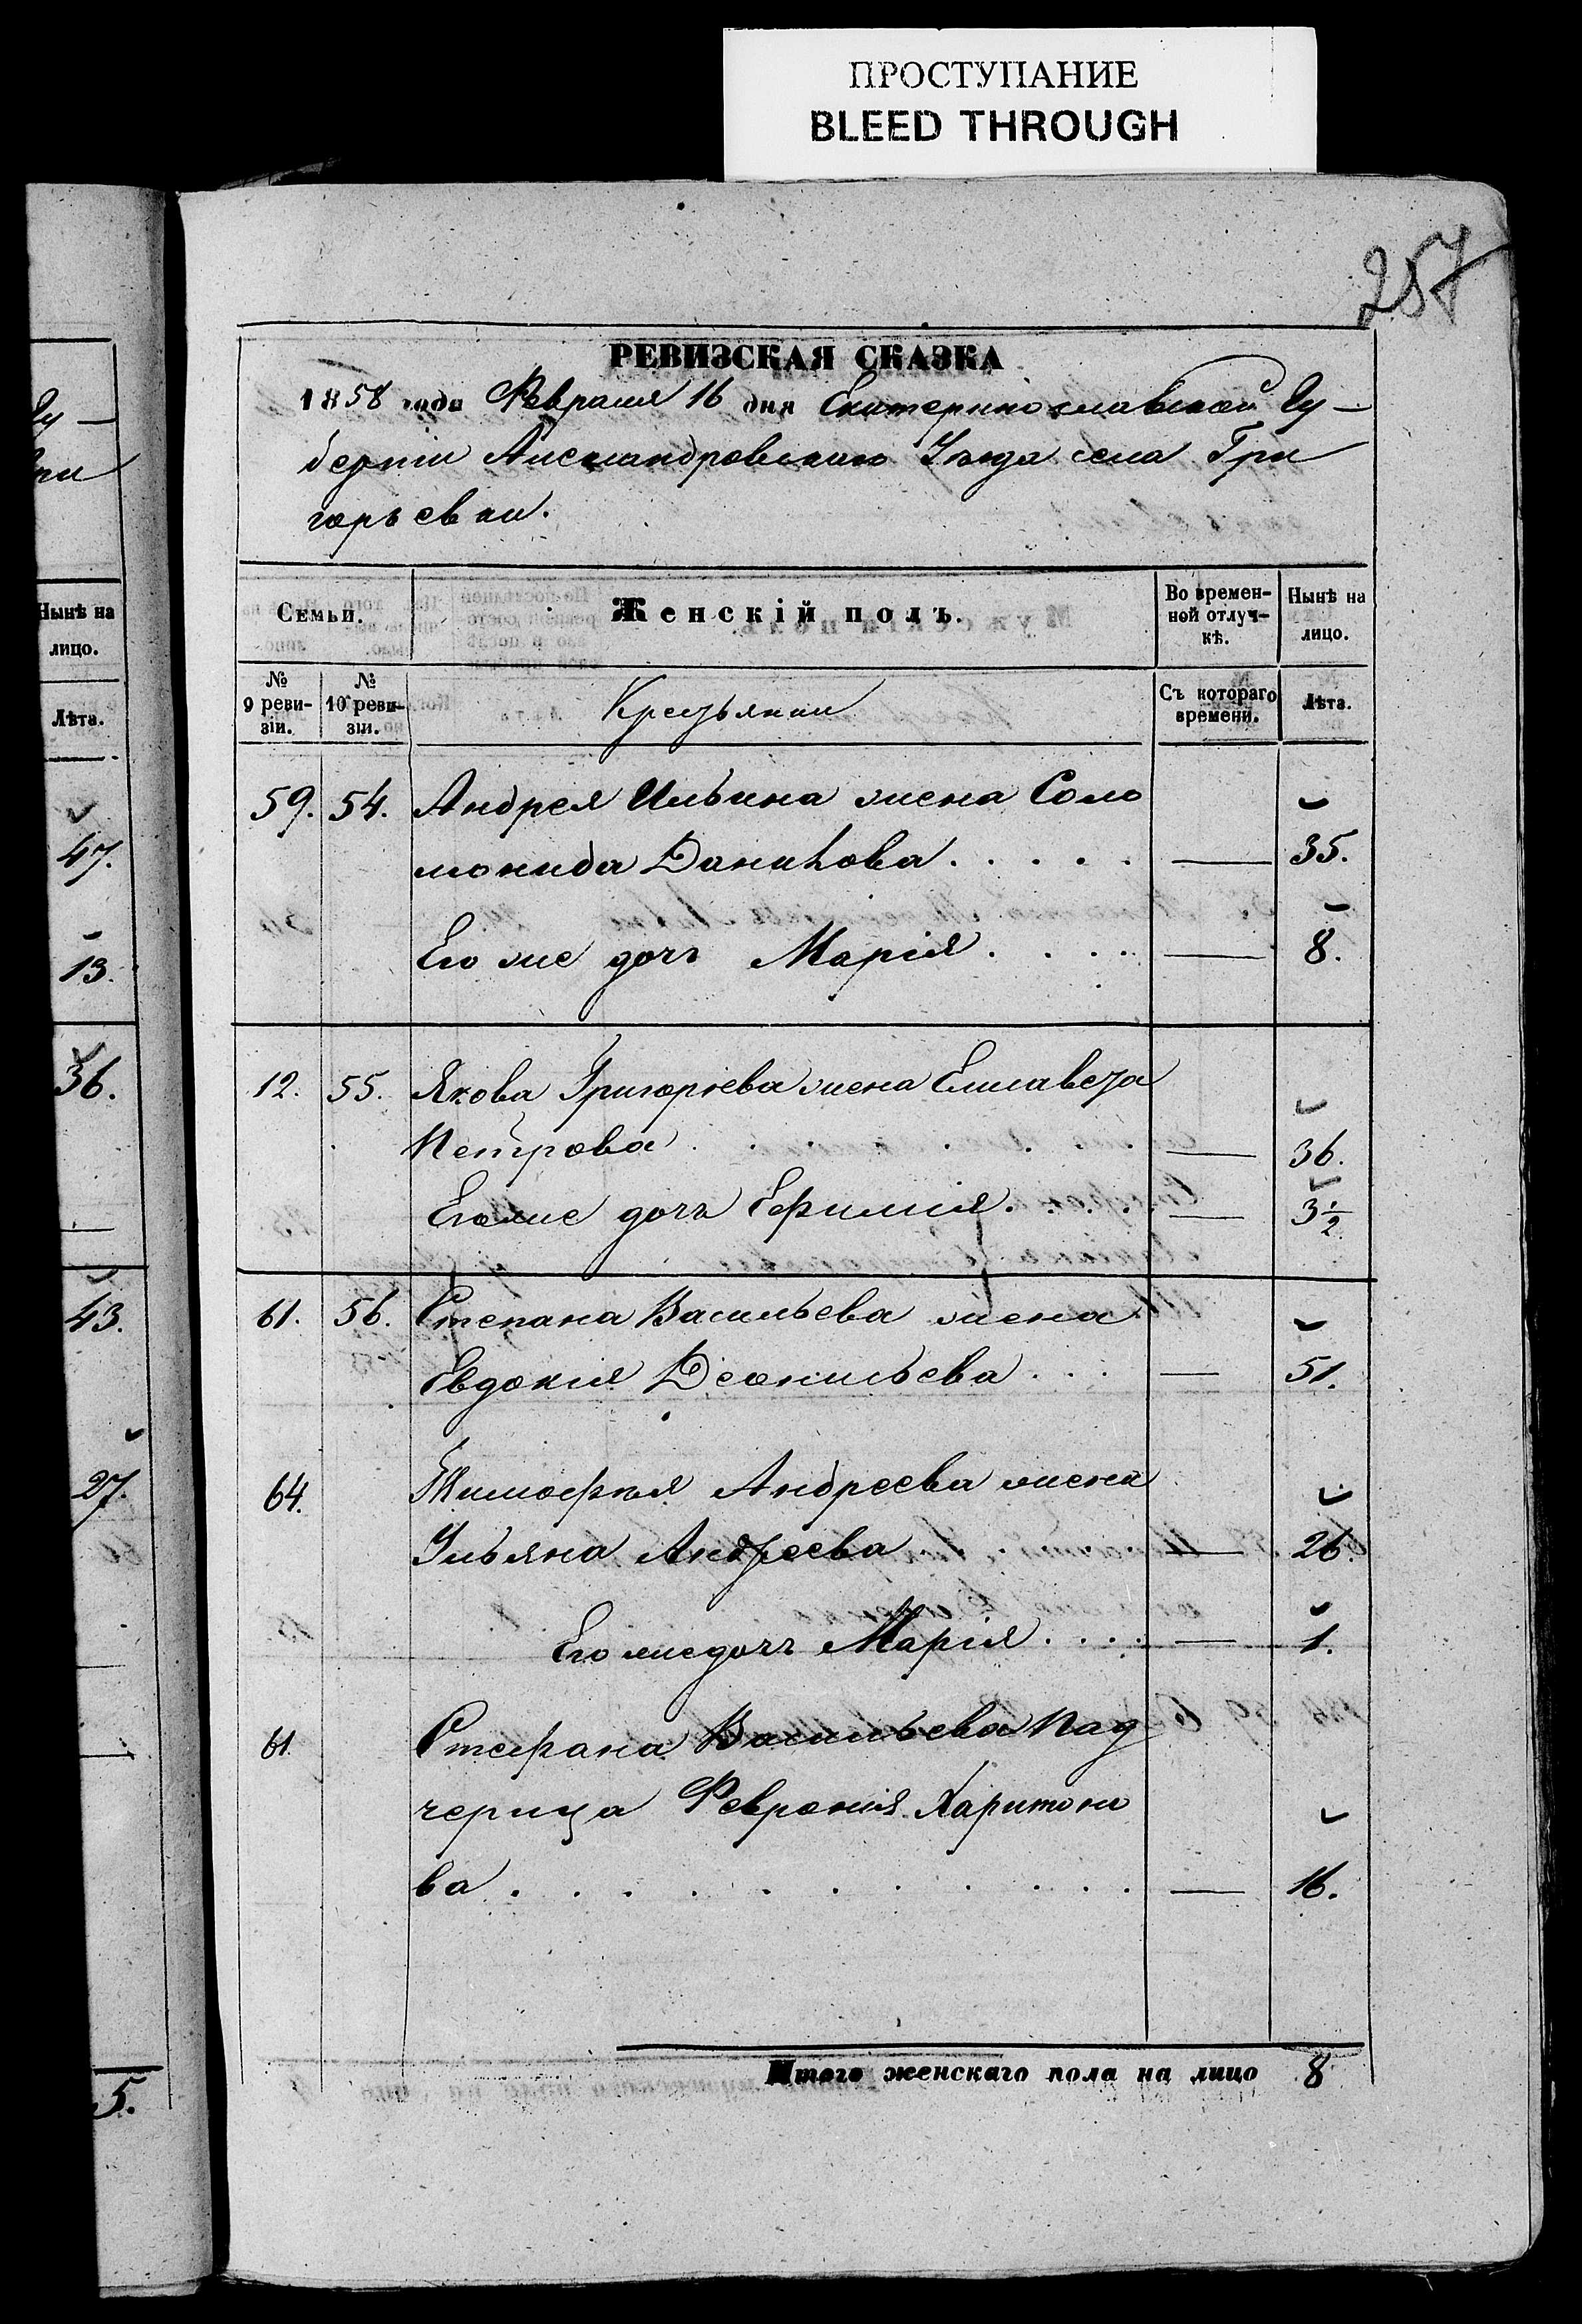 ПРОСТУПАНИЕ
BLEED THROUGH
257
РЕВИЗСКАЯ СКАЗКА
1858 года Февраля 16 дня Екатеринославской Гу-
берніи Александровскаго Уѣзда села Гри
горьевки.
Семьи.
Женскій полъ.
Во времен-
ной отлуч-
кѣ.
Нынѣ на
лицо.
№
9 реви-
зіи.
№
10 реви-
зіи.
Крестьянки
Съ котораго
времени.
Лѣта.
59. 54. Андрея Ильина жена Соло
монида Данилова . . . . . — 35.
Его же дочь Марія . . . . — 8.
12. 55. Якова Григорьева жена Елисавета
Петрова . . . . — 36.
Его же дочь Ефимія . . . . — 3½
61. 56. Степана Васильева жена
Евдокія Леонтьева . . . — 51.
64. Тимофея Андреева жена
Ульяна Андреева . . — 26.
Его же дочь Марія . . . . — 1.
61. Стефана Васильева Пад
черица Февронія Харитоно
ва . . . . . . . . . . — 16.
Итого женскаго пола на лицо 8
Гу-
ри
Нынѣ на
лицо.
Лѣта.
47.
13.
36.
43.
27.
5.